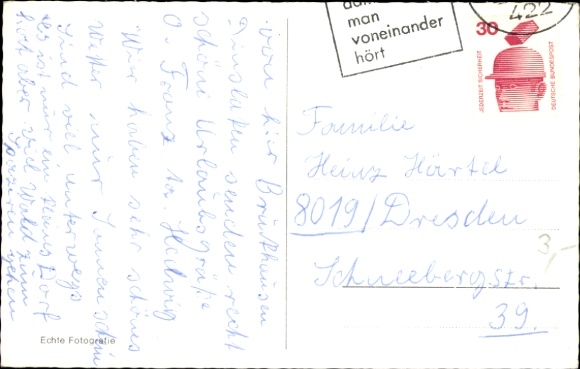 von hier Bruckhausen
Dinslaken senden recht
schöne Urlaubsgrüße
O. Franz ta. Hedwig
Wir haben sehr schönes
Wetter nur Sonnenschein
sind viel unterwegs
es ist nur ein kleines Dorf
hat aber viel Wald zum
spazieren gehen
Echte Fotografie
man
voneinander
hört
422
30
JEDERZEIT SICHERHEIT
DEUTSCHE BUNDESPOST
Familie
Heinz Härtel
8019/Dresden
Schneebergstr.
39.
3,-